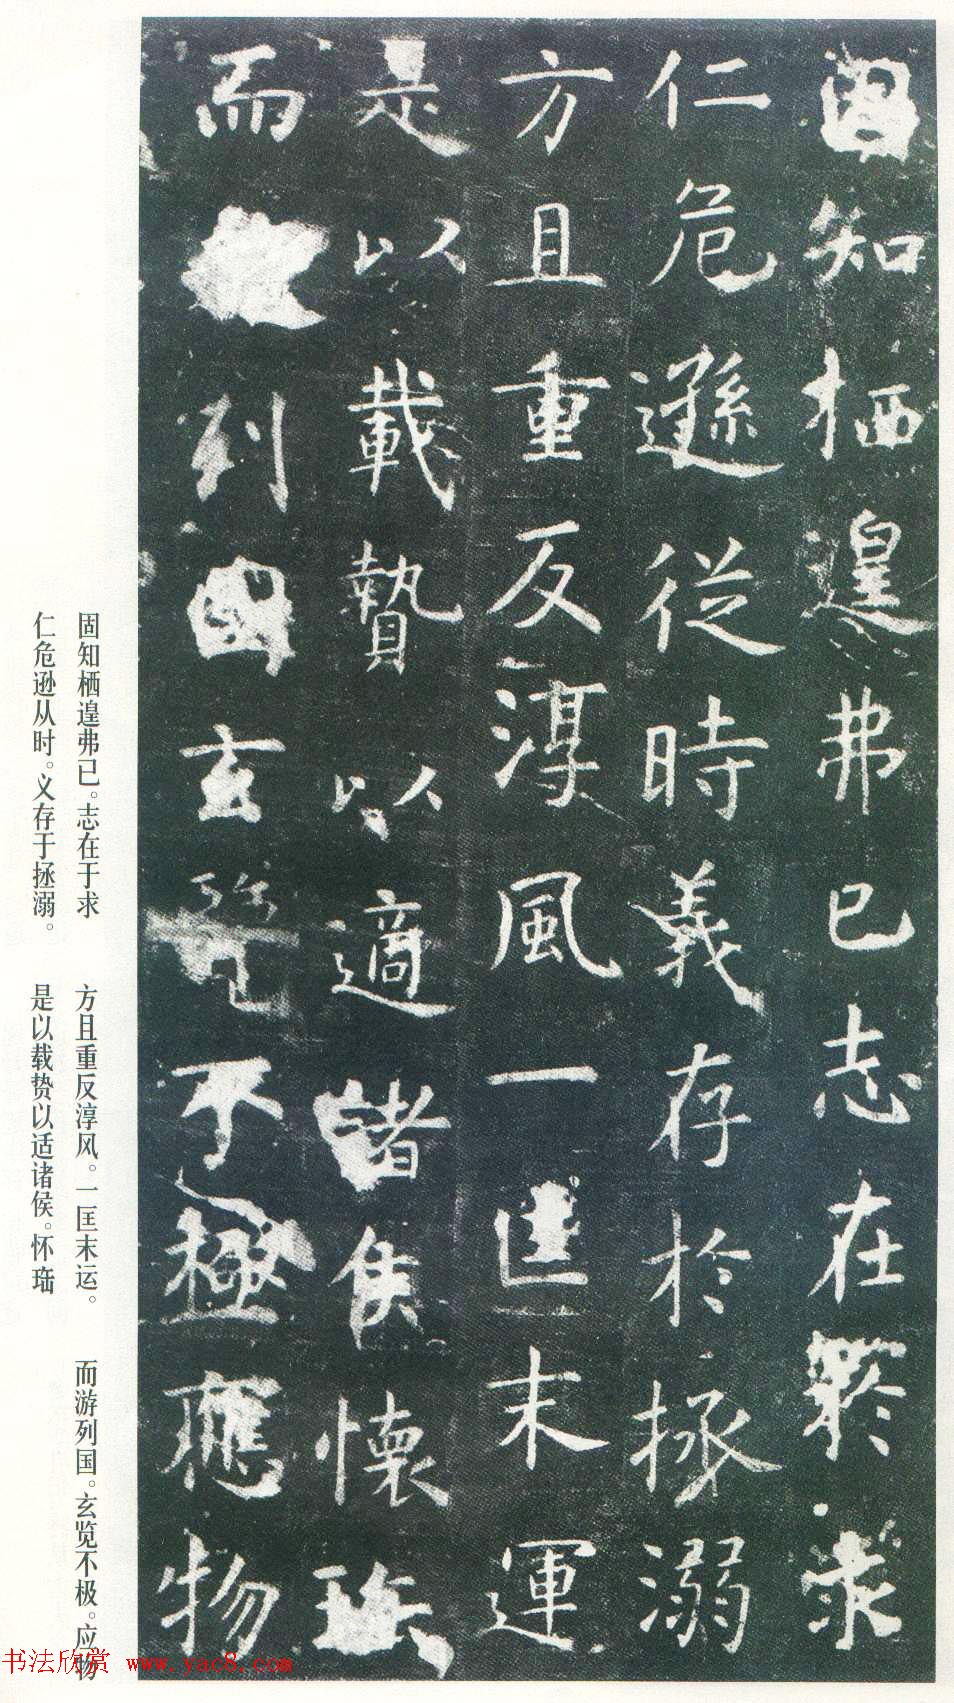 固知栖遑弗已志在於求
仁危遜従時義存於拯溺
方且重反淳風一匡末運
是以載贄以適諸侯懷
而列國玄覽不極應物
固知栖遑弗已。志在于求
仁危逊从时。义存于拯溺。
方且重反淳风。一匡末运。
是以载贽以适诸侯。怀瑙
而游列国。玄览不极。应物
书法欣赏 www.yac8.com